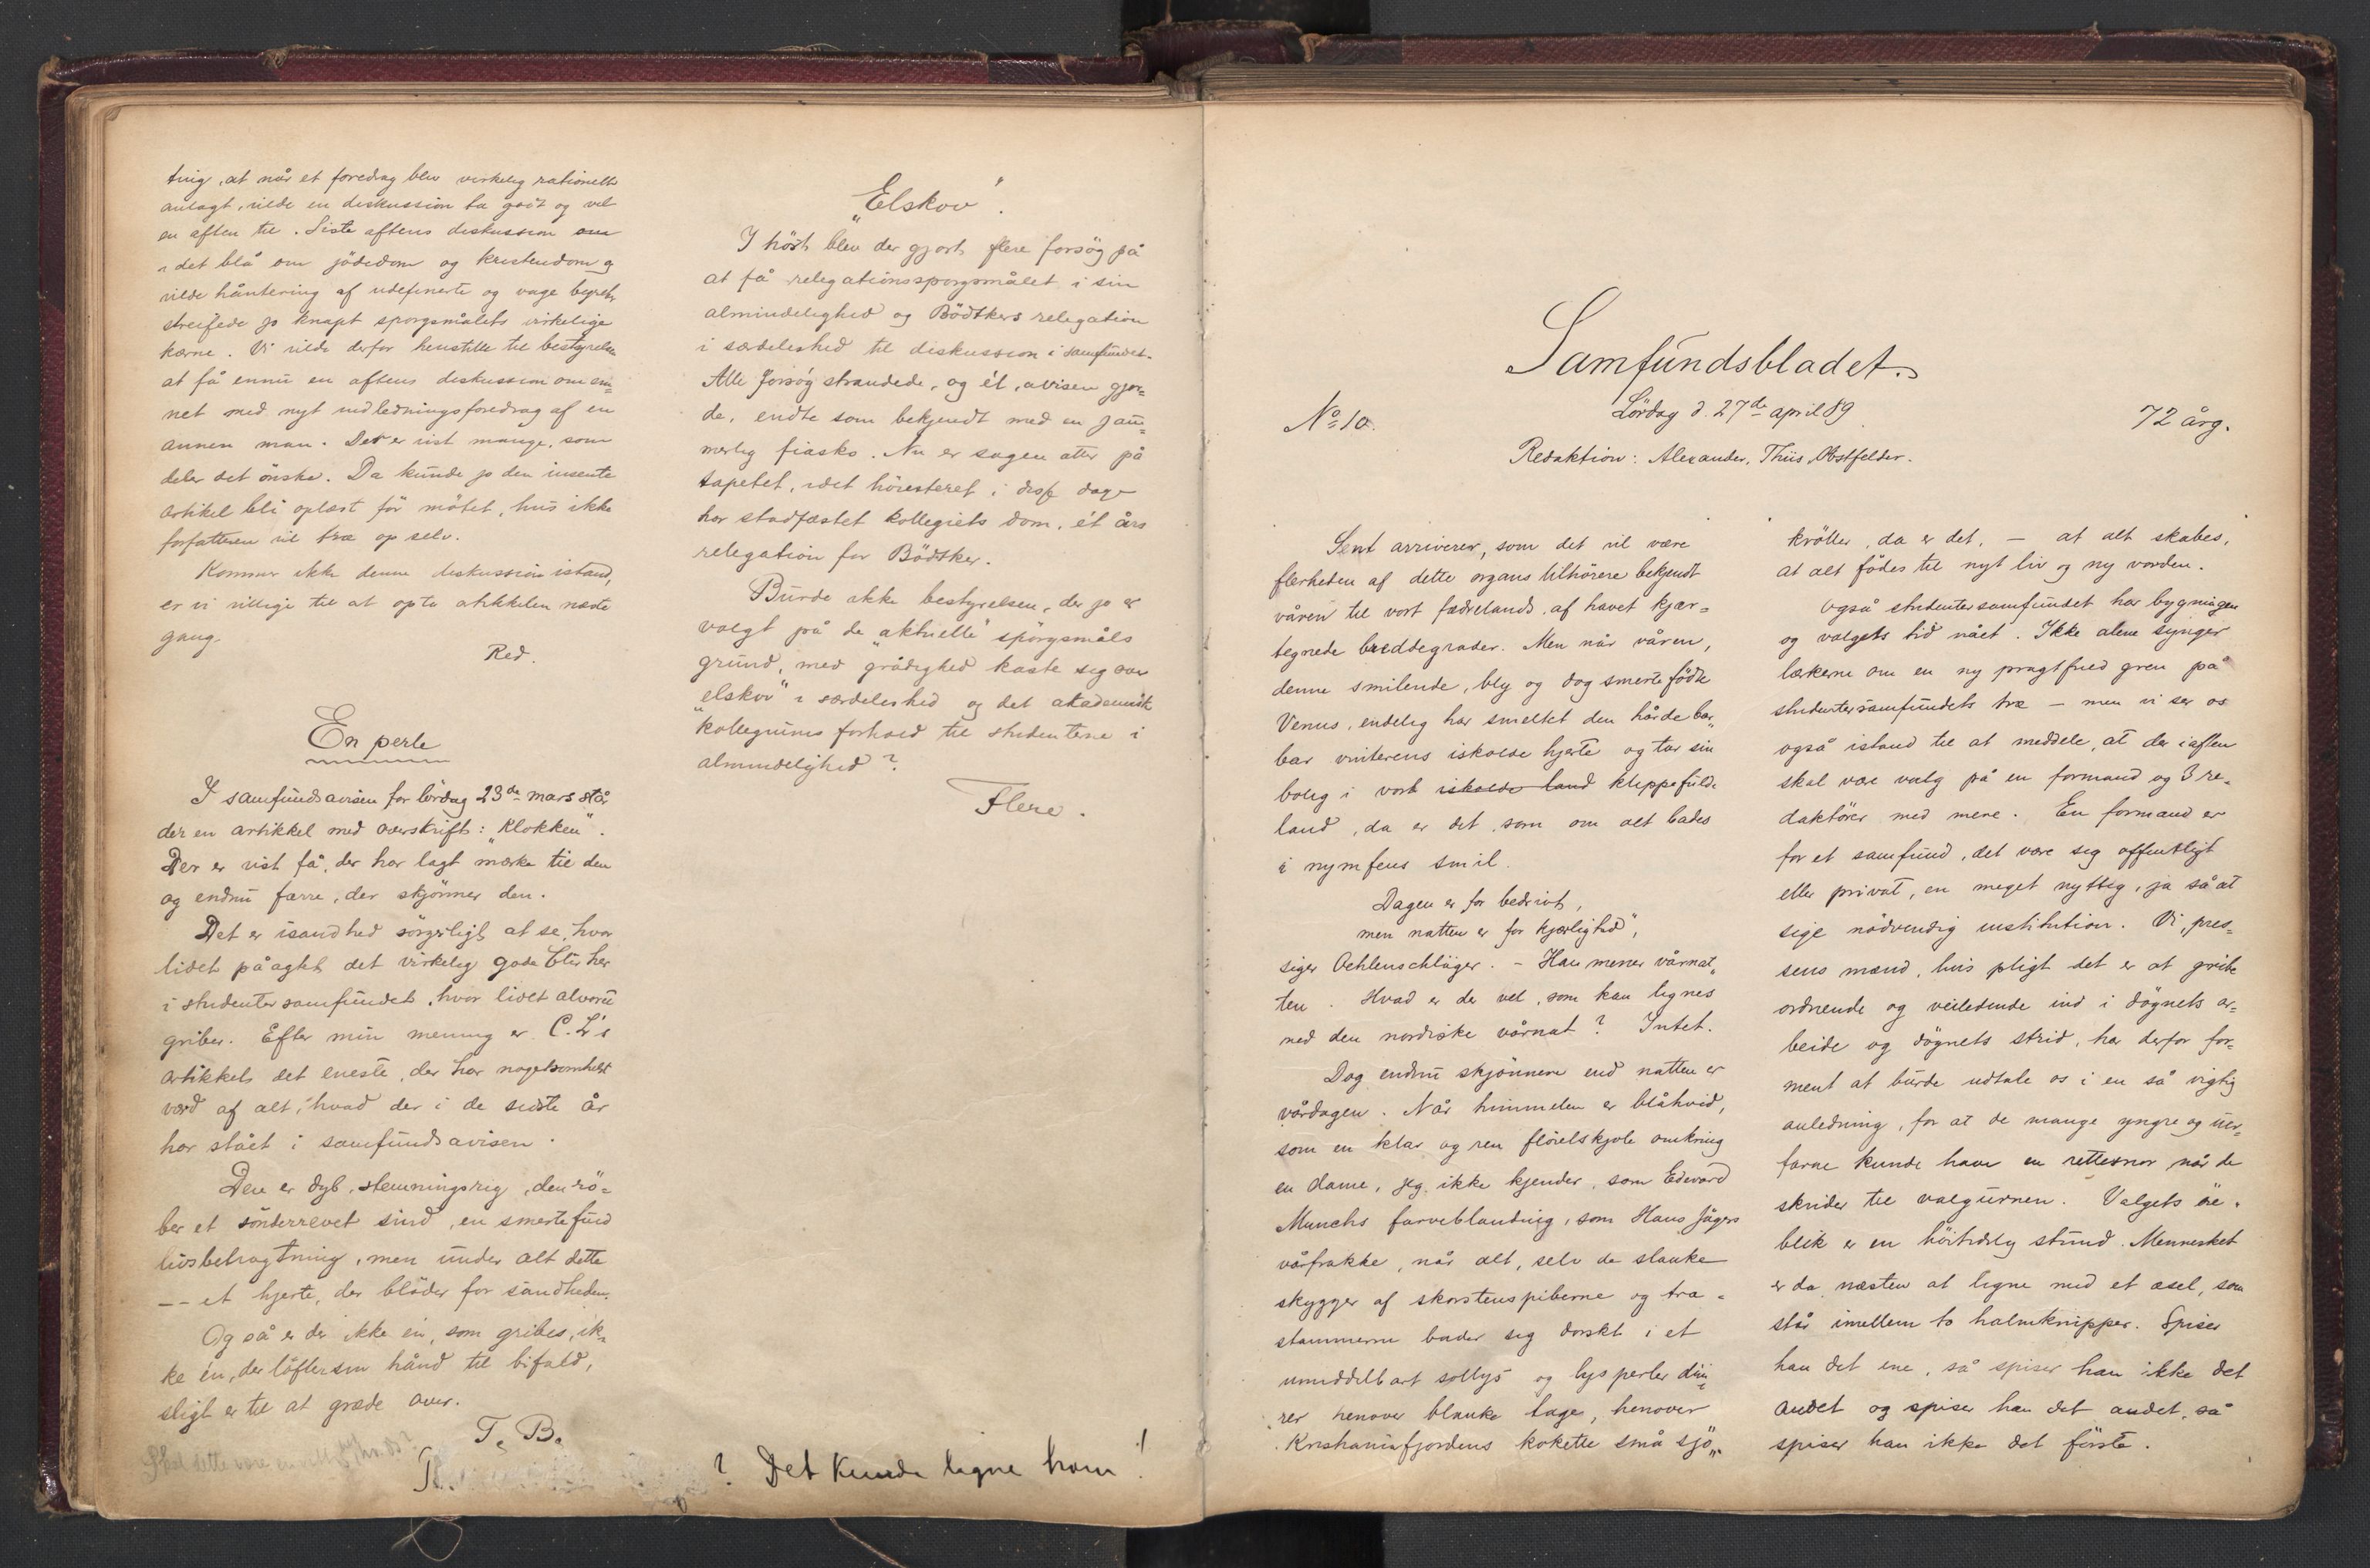 ting, at når et foredrag blev virkelig rationelt
anlagt, vilde en diskussion ta godt og vel
en aften til. Siste aftens diskussion
i det blå om jödedom og kristendom og
vilde håntering af udefinerte og vage begreb
streifede jo knapt spørgsmålets virkelige
kærne. Vi vilde derfor henstille til bestyrelsen
at få ennu en aftens diskussion om em=
net med nyt indledningsforedrag af en
annen man. Det er vist mange, som
deler det önske. Da kunde jo den insente
artikel bli oplæst för mötet, hvis ikke
forfatteren vil træ op selv.
Kommer ikke denne diskussion istand,
er vi villige til at opta artikkelen næste
gang.
Red.
En perle
I samfundsavisen for lördag 23de mars står
der en artikkel med overskrift: "Klokken".
Der er vist få, der har lagt mærke til den
og endnu færre, der skjönner den.
Det er isandhed sörgeligt at se, hvor
lidet påagtet det virkelig gode blir her
i studentersamfundet, hvor lidet alvoret
griber. Efter min mening er C. L's
artikkel det eneste, der har nogetsomhelst
værd af alt, hvad der i de sidste år
har stået i samfundsavisen.
Den er dyb, stemningsrig, den rö=
ber et sönderrevet sind, en smertefuld
livsbetragtning, men under alt dette
-- et hjerte, der blöder for sandheden.
Og så er der ikke én, som gribes, ik=
ke én, der löfter sin hånd til bifald,
sligt er til at græde over.
T. B.
Skal dette være
? Det kunde ligne ham!
"Elskov".
I höst blev der gjort flere forsög på
at få relegationsspörgsmålet i sin
almindelighed og Bödtkers relegation
i særdeleshed til diskussion i samfundet.
Alle forsög strandede, og ét, avisen gjor=
de, endte som bekjendt med en jam=
merlig fiasko. Nu er sagen atter på
tapetet, idet höiesteret i disse dage
har stadfæstet kollegiets dom, ét års
relegation for Bödtker.
Burde ikke bestyrelsen, der jo er
valgt på de "aktuelle" spörgsmåls
grund, med grådighed kaste seg over
"elskov" i særdeleshed og det akademisk
kollegiums forhold til studenterne i
almindelighed?
Flere.
Samfundsbladet.
Lördag d. 27de april 89
No 10.
72 årg.
Redaktion: Alexander, Thiis, Obstfelder.
Sent arriverer, som det vil være
flerheden af dette organs tilhörere bekjendt
våren til vort fædrelands, af havet kjær=
tegnede breddegrader. Men når våren,
denne smilende, bly og dog smertefödte
Venus, endelig har smeltet den hårde bar=
bar vinterens iskolde hjerte og tar sin
bolig i vort iskolde land klippefulde
land, da er det, som om alt bades
i nymfens smil.
Dagen er for bedrivt,
men natten er for kjærlighed",
siger Oehlenschläger. - Han mener vårnat=
ten. Hvad er der vel, som kan lignes
med den nordiske vårnat? Intet.
Dog endnu skjönnere end natten er
vårdagen. Når himmelen er blåhvid,
som en klar og ren flöielskjole omkring
en dame, jeg ikke kjender, som Edvard
Munchs farveblanding, som Hans Jægers
vårfrakke, når alt, selv de slanke
skygger af skorstenspiberne og træ=
stammerne bader sig dorskt i et
umiddelbart sollys og lysperler dir=
rer henover blanke tage, henover
Kristianiafjordens kokette små sjö=
kröller, da er det, - at alt skabes,
at alt födes til nyt liv og ny vorden.
Også studentersamfundet har bygningen
og valgets tid nået. Ikke alene synger
lærkerne om en ny pragtfuld gren på
studentersamfundets træ - men vi ser os
også istand til at meddele, at der iaften
skal være valg på en formand og 3 re=
daktörer med mere. En formand er
for et samfund, det være sig offentligt
eller privat, en meget nyttig, ja så at
sige nödvendig institution. Vi, pres=
sens mænd, hvis pligt det er at gribe
ordnende og veiledende ind i dögnets ar=
beide og dögnets strid, har derfor for=
ment at burde udtale os i en så vigtig
anledning, for at de mange yngre og uer=
farne kunde have en rettesnor når de
skrider til valgurnen. Valgets öie=
blik er en höitidelig stund. Mennesket
er da næsten at ligne med et æsel, som
står imellem to halmknipper. Spiser
han det ene, så spiser han ikke det
andet og spiser han det andet, så
spiser han ikke det förste.